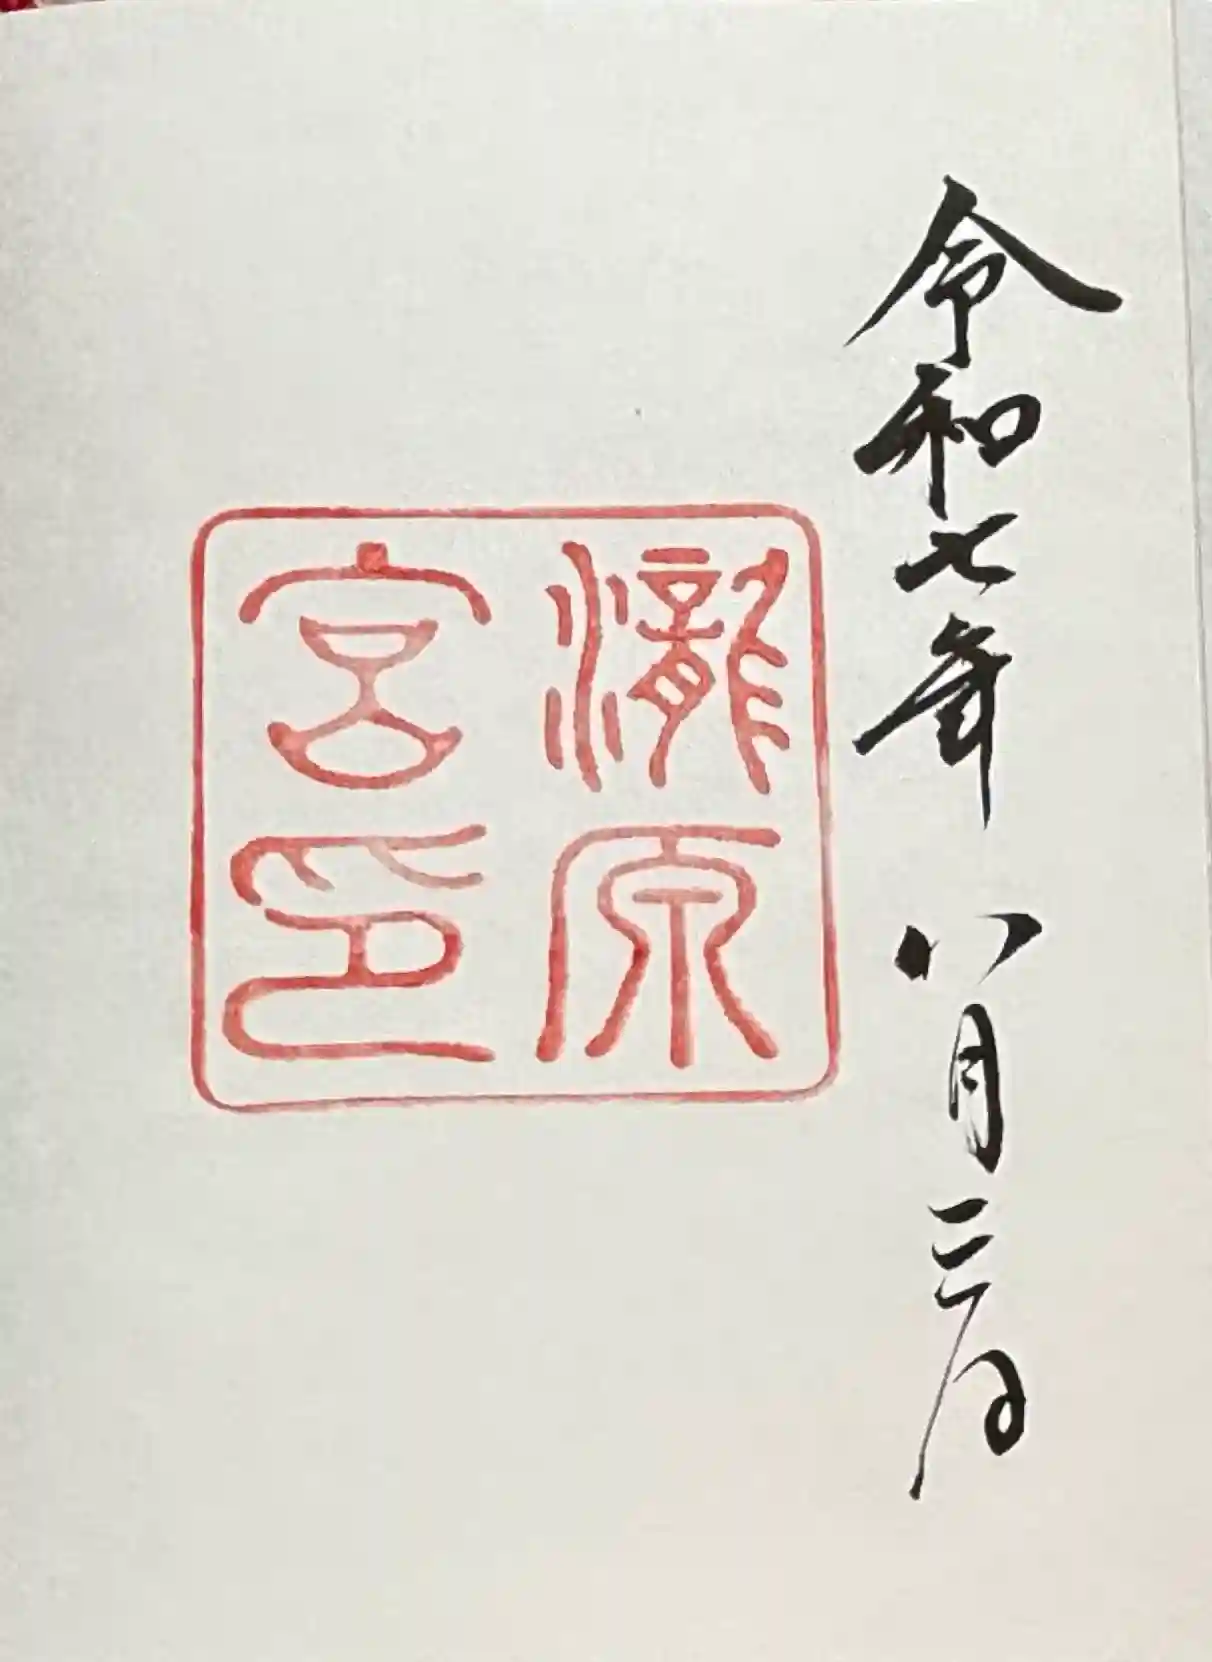 令和七年 八月三日
瀧原
宮印